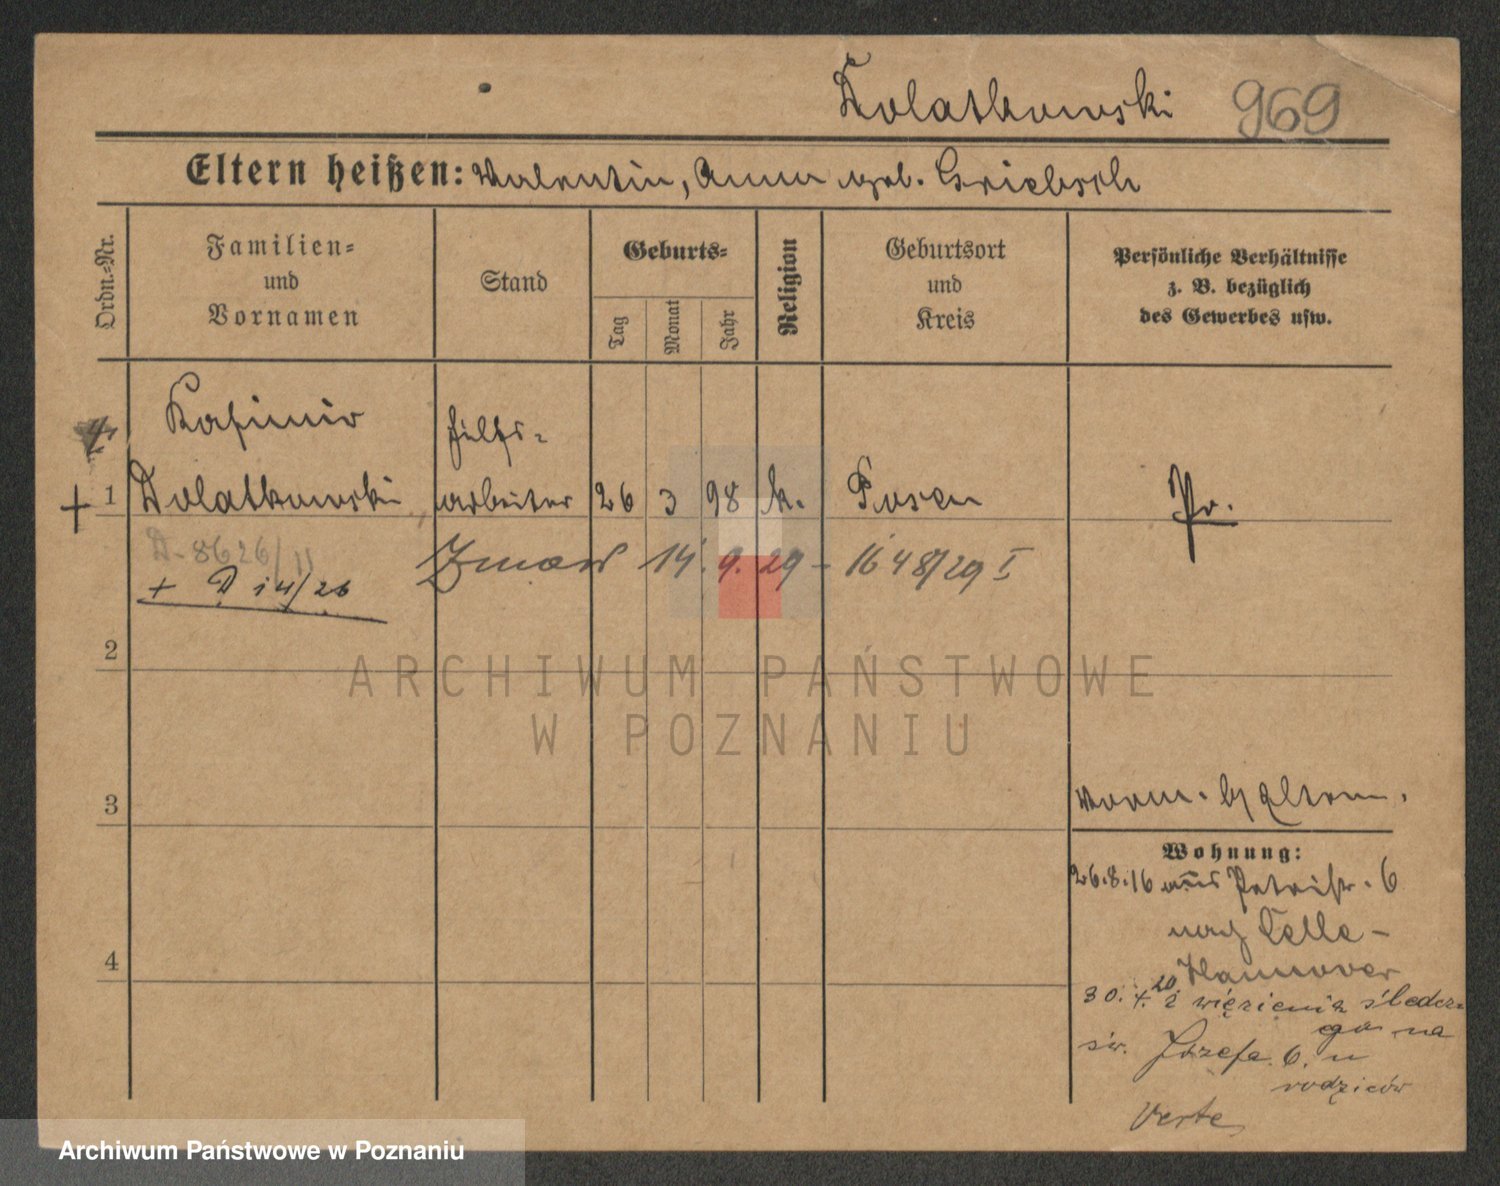 Dolatkowski 969
Eltern heißen: Valentin, Anna geb. Griebsch
Ordn.=Nr.
Familien=
und
Vornamen
Stand
Geburts=
Tag
Monat
Jahr
Religion
Geburtsort
und
Kreis
Persönliche Verhältnisse
z. B. bezüglich
des Gewerbes usw.
Kasimir Hilfs-
+ 1 Dolatkowski arbeiter 26 3 98 k. Posen Pr.
D-8626/11
Zmarł 14. 9. 29 - 1648/29 I
+ D 14/26
2
ARCHIWUM PAŃSTWOWE
W POZNANIU
3
b/ Eltern.
Wohnung:
26.8.16 aus Petristr. 6
nach Celle-
Hannover
30. 4. 20 z więzienia śledcze
go na
św. Józefa 6. u
rodziców
Verte
4
Archiwum Państwowe w Poznaniu